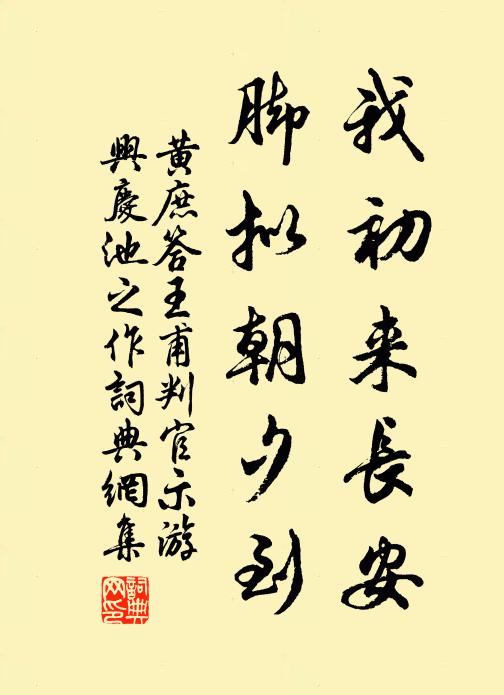 我初来長安
脚拟朝夕到
黄庶答王甫判官示游
興慶池之作詞典網集
詞典网印